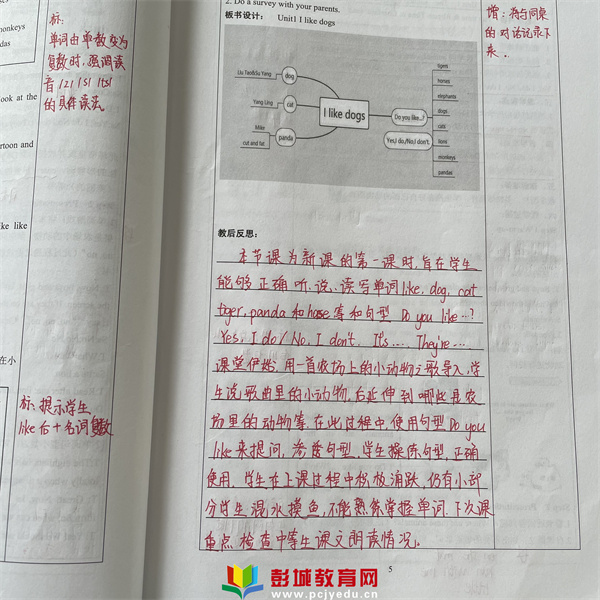 monkeys
das
ook at the
rtoon and
ke like
在小
标:
单词由单数变为
复数时,强调读
音/z/ /s/ /ts/
的具体读法
标:提示学生
like后+名词复数
2. Do a survey with your parents.
板书设计: Unit1 I like dogs
Liu Tao&Su Yang
dog
Yang Ling
cat
Mike
cut and fat
panda
I like dogs
Do you like...?
Yes,I do./No,I don't.
tigers
horses
elephants
dogs
cats
lions
monkeys
pandas
增:将与同桌
的对话记录下
来。
教后反思:
本节课为新课的第一课时,旨在学生
能够正确听、说、读写单词like, dog, cat
tiger, panda和horse等和句型 Do you like...?
Yes, I do / No, I don't. It's.... They're...
课堂伊始,用一首农场上的小动物之歌导入,学
生说歌曲里的小动物,后延伸到哪些是农
场里的动物等,在此过程中,使用句型Do you
like来提问,渗透句型,学生操练句型,正确
使用。学生在上课过程中积极活跃,仍有小部
分学生混水摸鱼,不能熟练掌握单词,下次课
重点检查中等生课文朗读情况。
5
彭城教育网
www.pcjyedu.cn